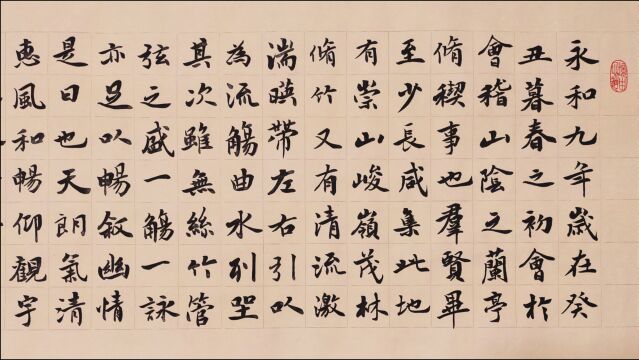 永和九年歲在癸
丑暮春之初會於
會稽山陰之蘭亭
脩禊事也羣賢畢
至少長咸集此地
有崇山峻嶺茂林
脩竹又有清流激
湍暎帶左右引以
為流觴曲水列坐
其次雖無絲竹管
弦之盛一觴一詠
亦足以暢敘幽情
是日也天朗氣清
惠風和暢仰觀宇